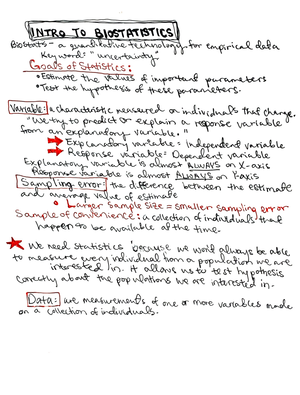 INTRO TO BIOSTATISTICS
Biostats - a quantitative technology for empirical data
Keyword: "uncertainty"
Goals of Statistics:
• Estimate the values of important parameters
• Test the hypothesis of these parameters.
Variable: a characteristic measured on individuals that change.
"We try to predict or explain a response variable
from an explanatory variable."
→ Explanatory variable = Independent variable
→ Response variable = Dependent variable
Explanatory variable is almost ALWAYS on X-axis
Response variable is almost ALWAYS on Y-axis
Sampling error: the difference between the estimate
and average value of estimate
• Larger sample size = smaller sampling error
Sample of convenience: a collection of individuals that
happen to be available at the time.
★ We need statistics because we won't always be able
to measure every individual from a population we are
interested in. It allows us to test hypothesis
correctly about the populations we are interested in.
Data: are measurements of one or more variables made
on a collection of individuals.